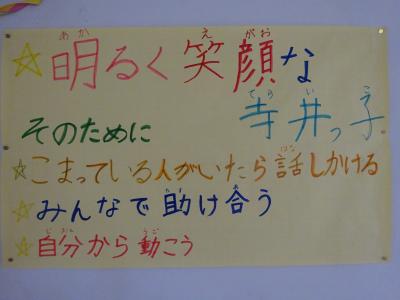 ☆明るく笑顔な
寺井っ子
そのために
☆こまっている人がいたら話しかける
☆みんなで助け合う
☆自分から動こう